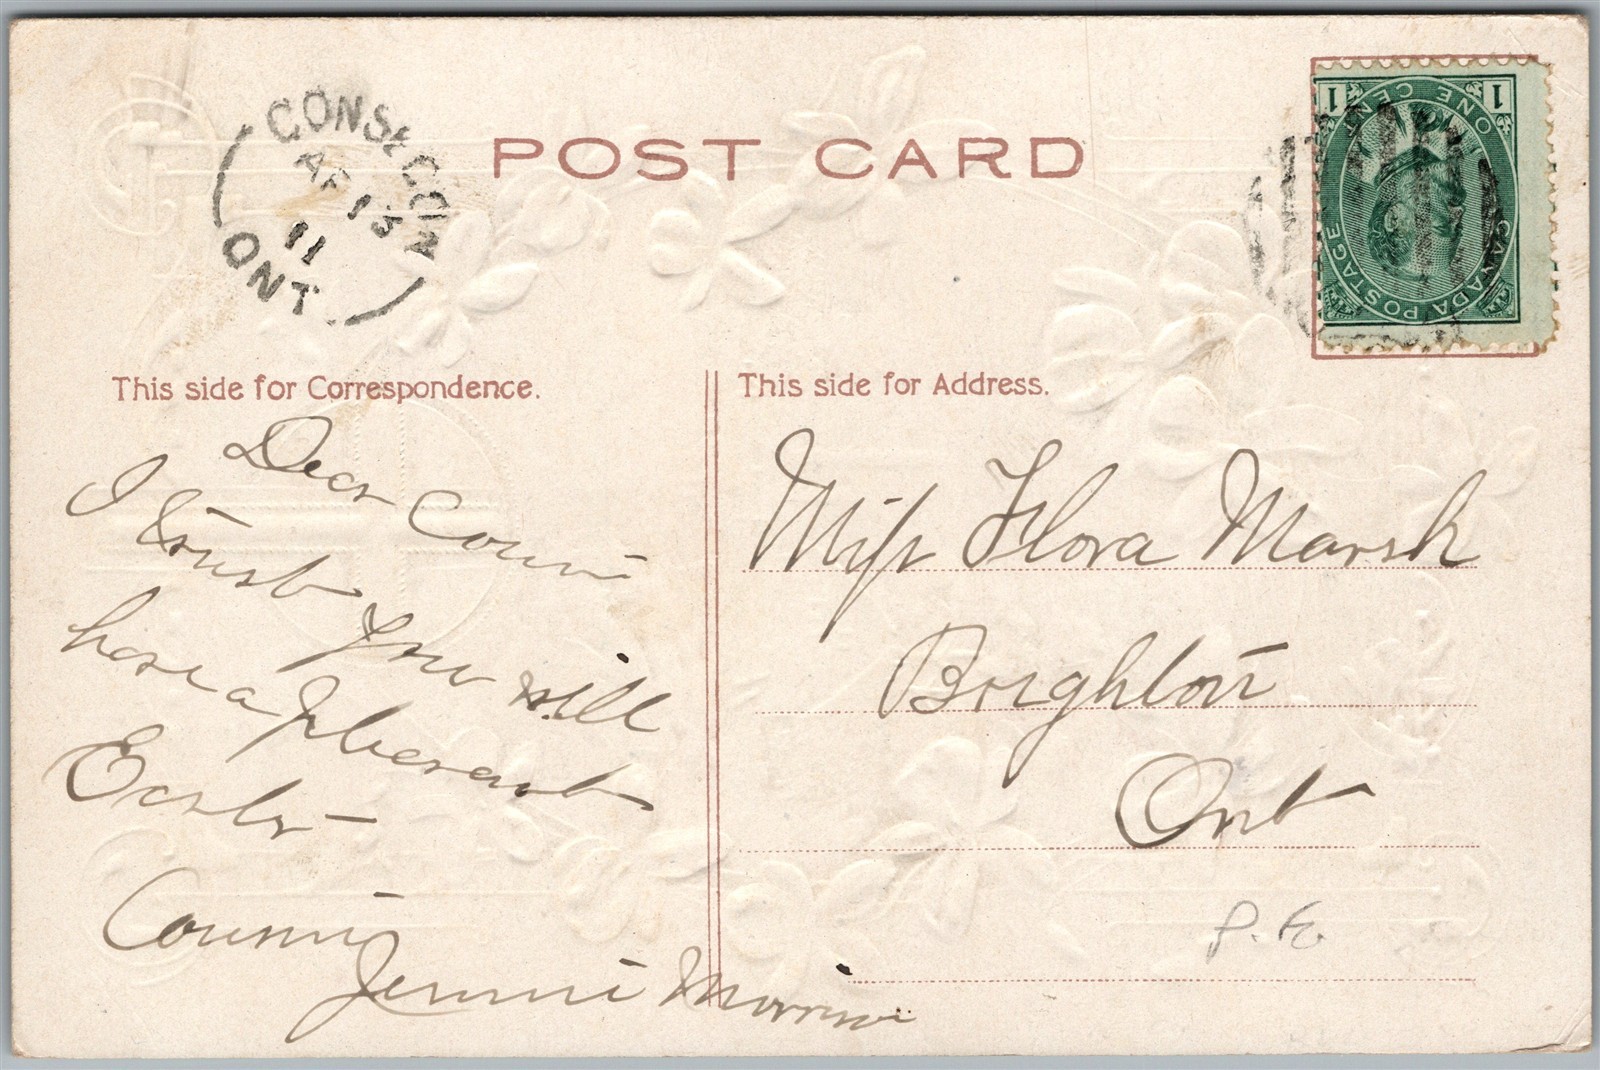 POST CARD
CONSECON
AP 13
11
ONT
1 1
ONE CENT
CANADA POSTAGE
This side for Correspondence.
Dear Cousin
I trust you will
have a pleasant
Easter
Cousin
Jennie
This side for Address.
Miss Flora Marsh
Brighton
Ont
P.E.